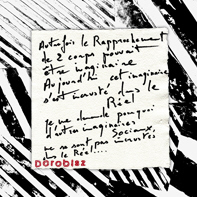 Autrefois le Rapprochement
de 2 corps pouvait
être imaginaire
Aujourd'hui cet imaginaire
s'est incrusté dans le
Réel
je me demande pourquoi
d'autres imaginaires
Sociaux,
ne se sont pas incrustés
dans le Réel....
DOROBI82